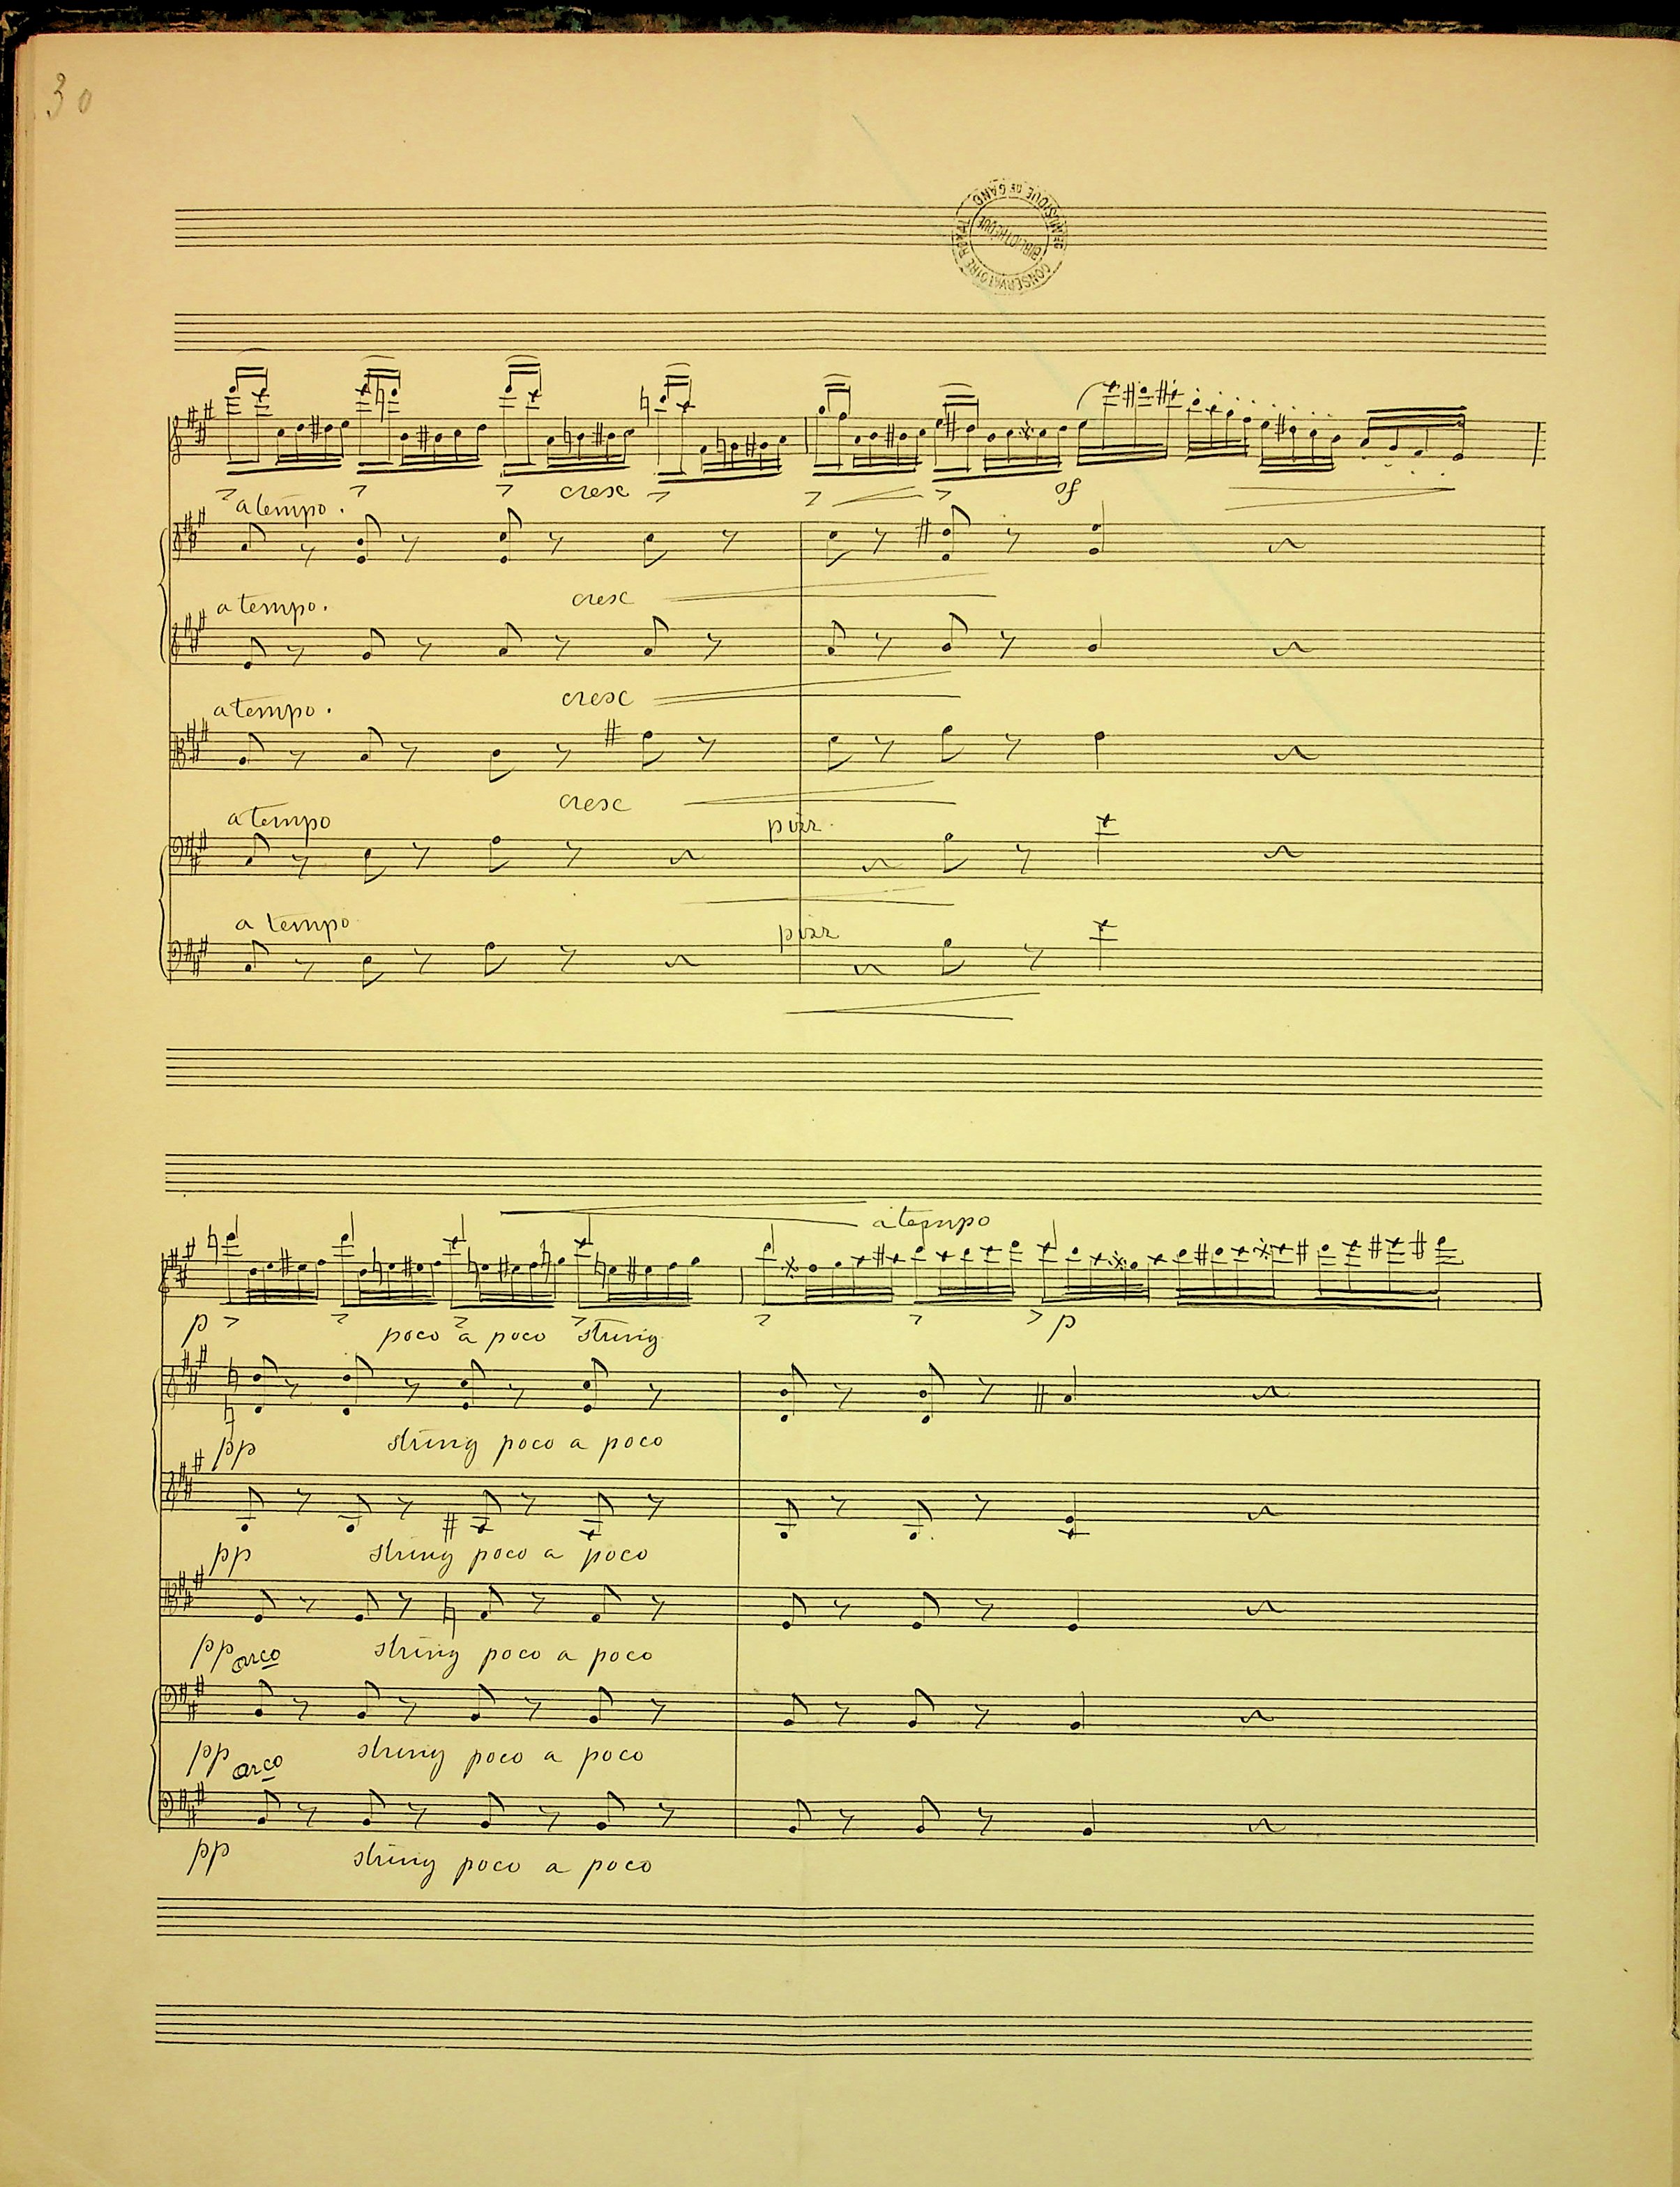 30
CONSERVATOIRE ROYAL DE MUSIQUE DE GAND
BIBLIOTHEQUE
cresc
sf
a tempo.
cresc
a tempo.
cresc
a tempo.
cresc
a tempo
pizz.
a tempo
pizz
a tempo
p
poco a poco string
p
pp
string poco a poco
pp
string poco a poco
pp arco
string poco a poco
pp arco
string poco a poco
pp
string poco a poco